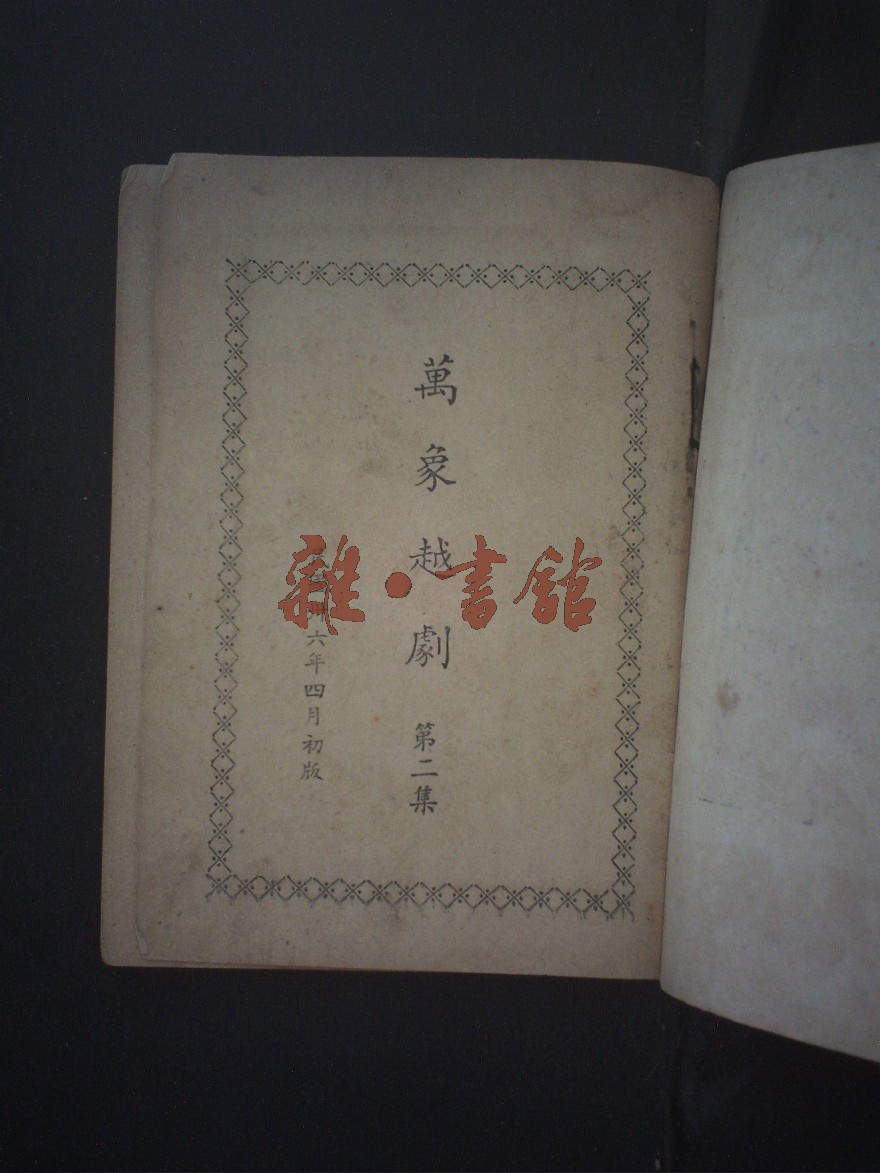 萬象越劇 第二集
卅六年四月初版
雜·書館